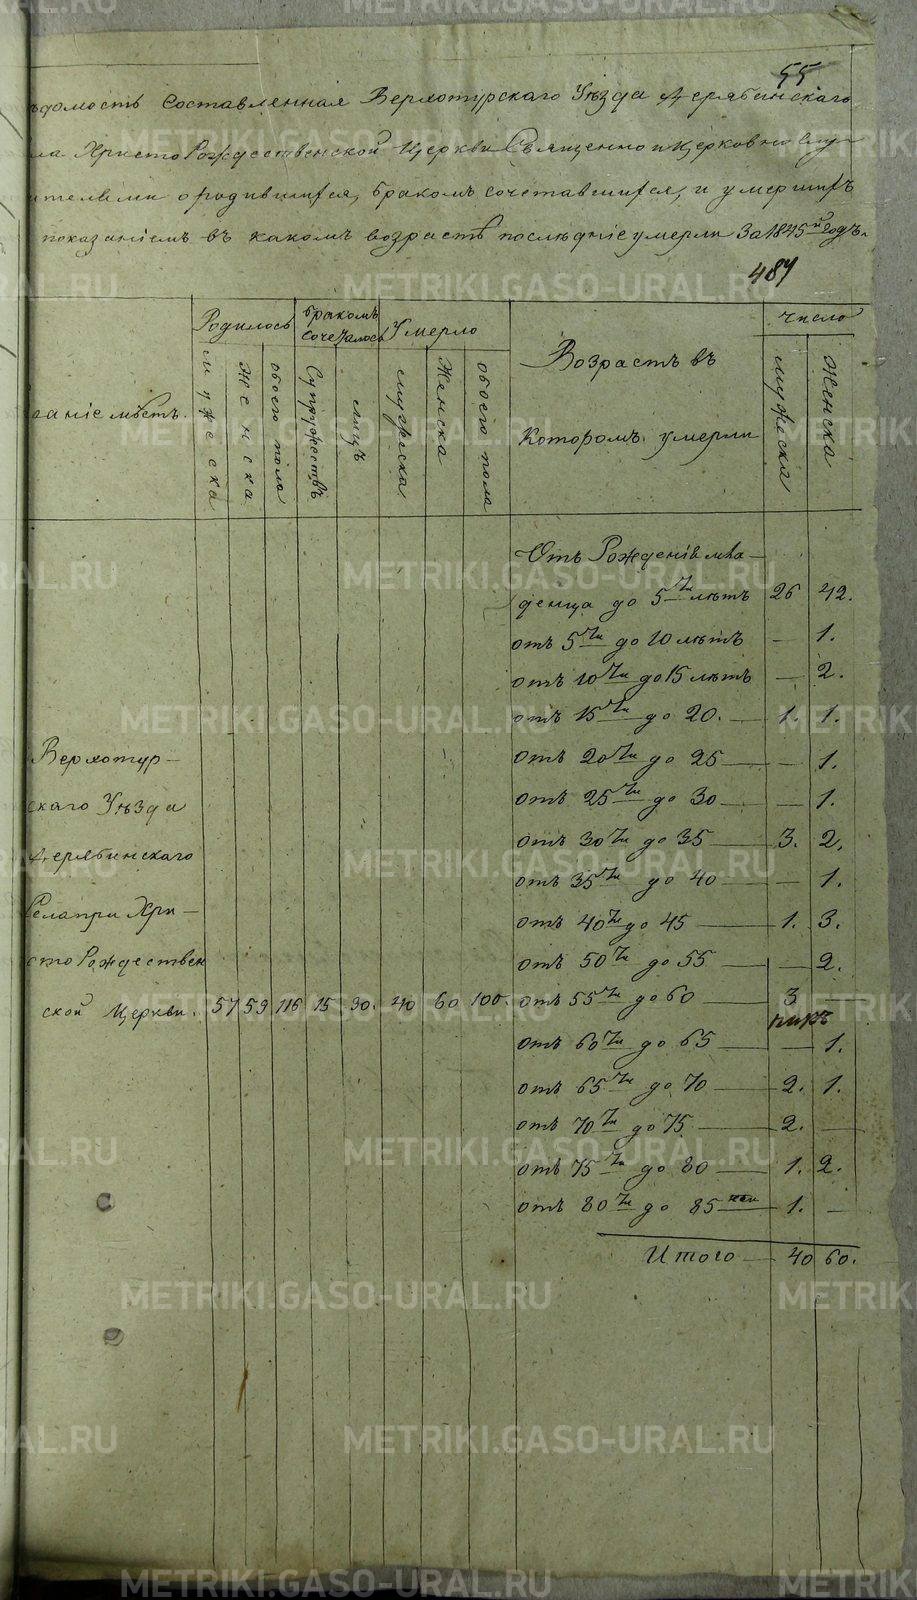 55
ѣдомость Составленная Верхотурскаго Уѣзда Дерябинскаго
ла Христо Рождественской Церкви Священно и Церковно слу-
ителями о родившихся, бракомъ сочетавшихся, и умершихъ
показаніемъ въ какомъ возрастѣ послѣдніе умерли За 1845й годъ.
487
Родилось
бракомъ сочеталось
Умерло
Возрастъ въ
Которомъ умерли
число
ваніе мѣстъ.
мужеска
Женска
обоего пола
Супружествъ
лицъ
мужеска
Женска
обоего пола
мужеска
Женска
Отъ Рожденія мла-
денца до 5ти лѣтъ 26 42.
отъ 5ти до 10 лѣтъ — 1.
отъ 10ти до 15 лѣтъ — 2.
отъ 15ти до 20. — 1. 1.
отъ 20ти до 25 — — 1.
отъ 25ти до 30 — — 1.
отъ 30ти до 35 — 3. 2.
отъ 35ти до 40 — — 1.
отъ 40ти до 45 — 1. 3.
отъ 50ти до 55 — — 2.
отъ 55ти до 60 — 3 —
отъ 60ти до 65 — — 1.
отъ 65ти до 70 — 2. 1.
отъ 70ти до 75 — 2. —
отъ 75ти до 80 — 1. 2.
отъ 80ти до 85 — 1. —
Итого — 40 60.
Верхотур-
скаго Уѣзда
Дерябинскаго
Села при Хри-
сто Рождествен
ской Церкви. 57 59 116 15 30. 40 60 100.
METRIKI.GASO-URAL.RU